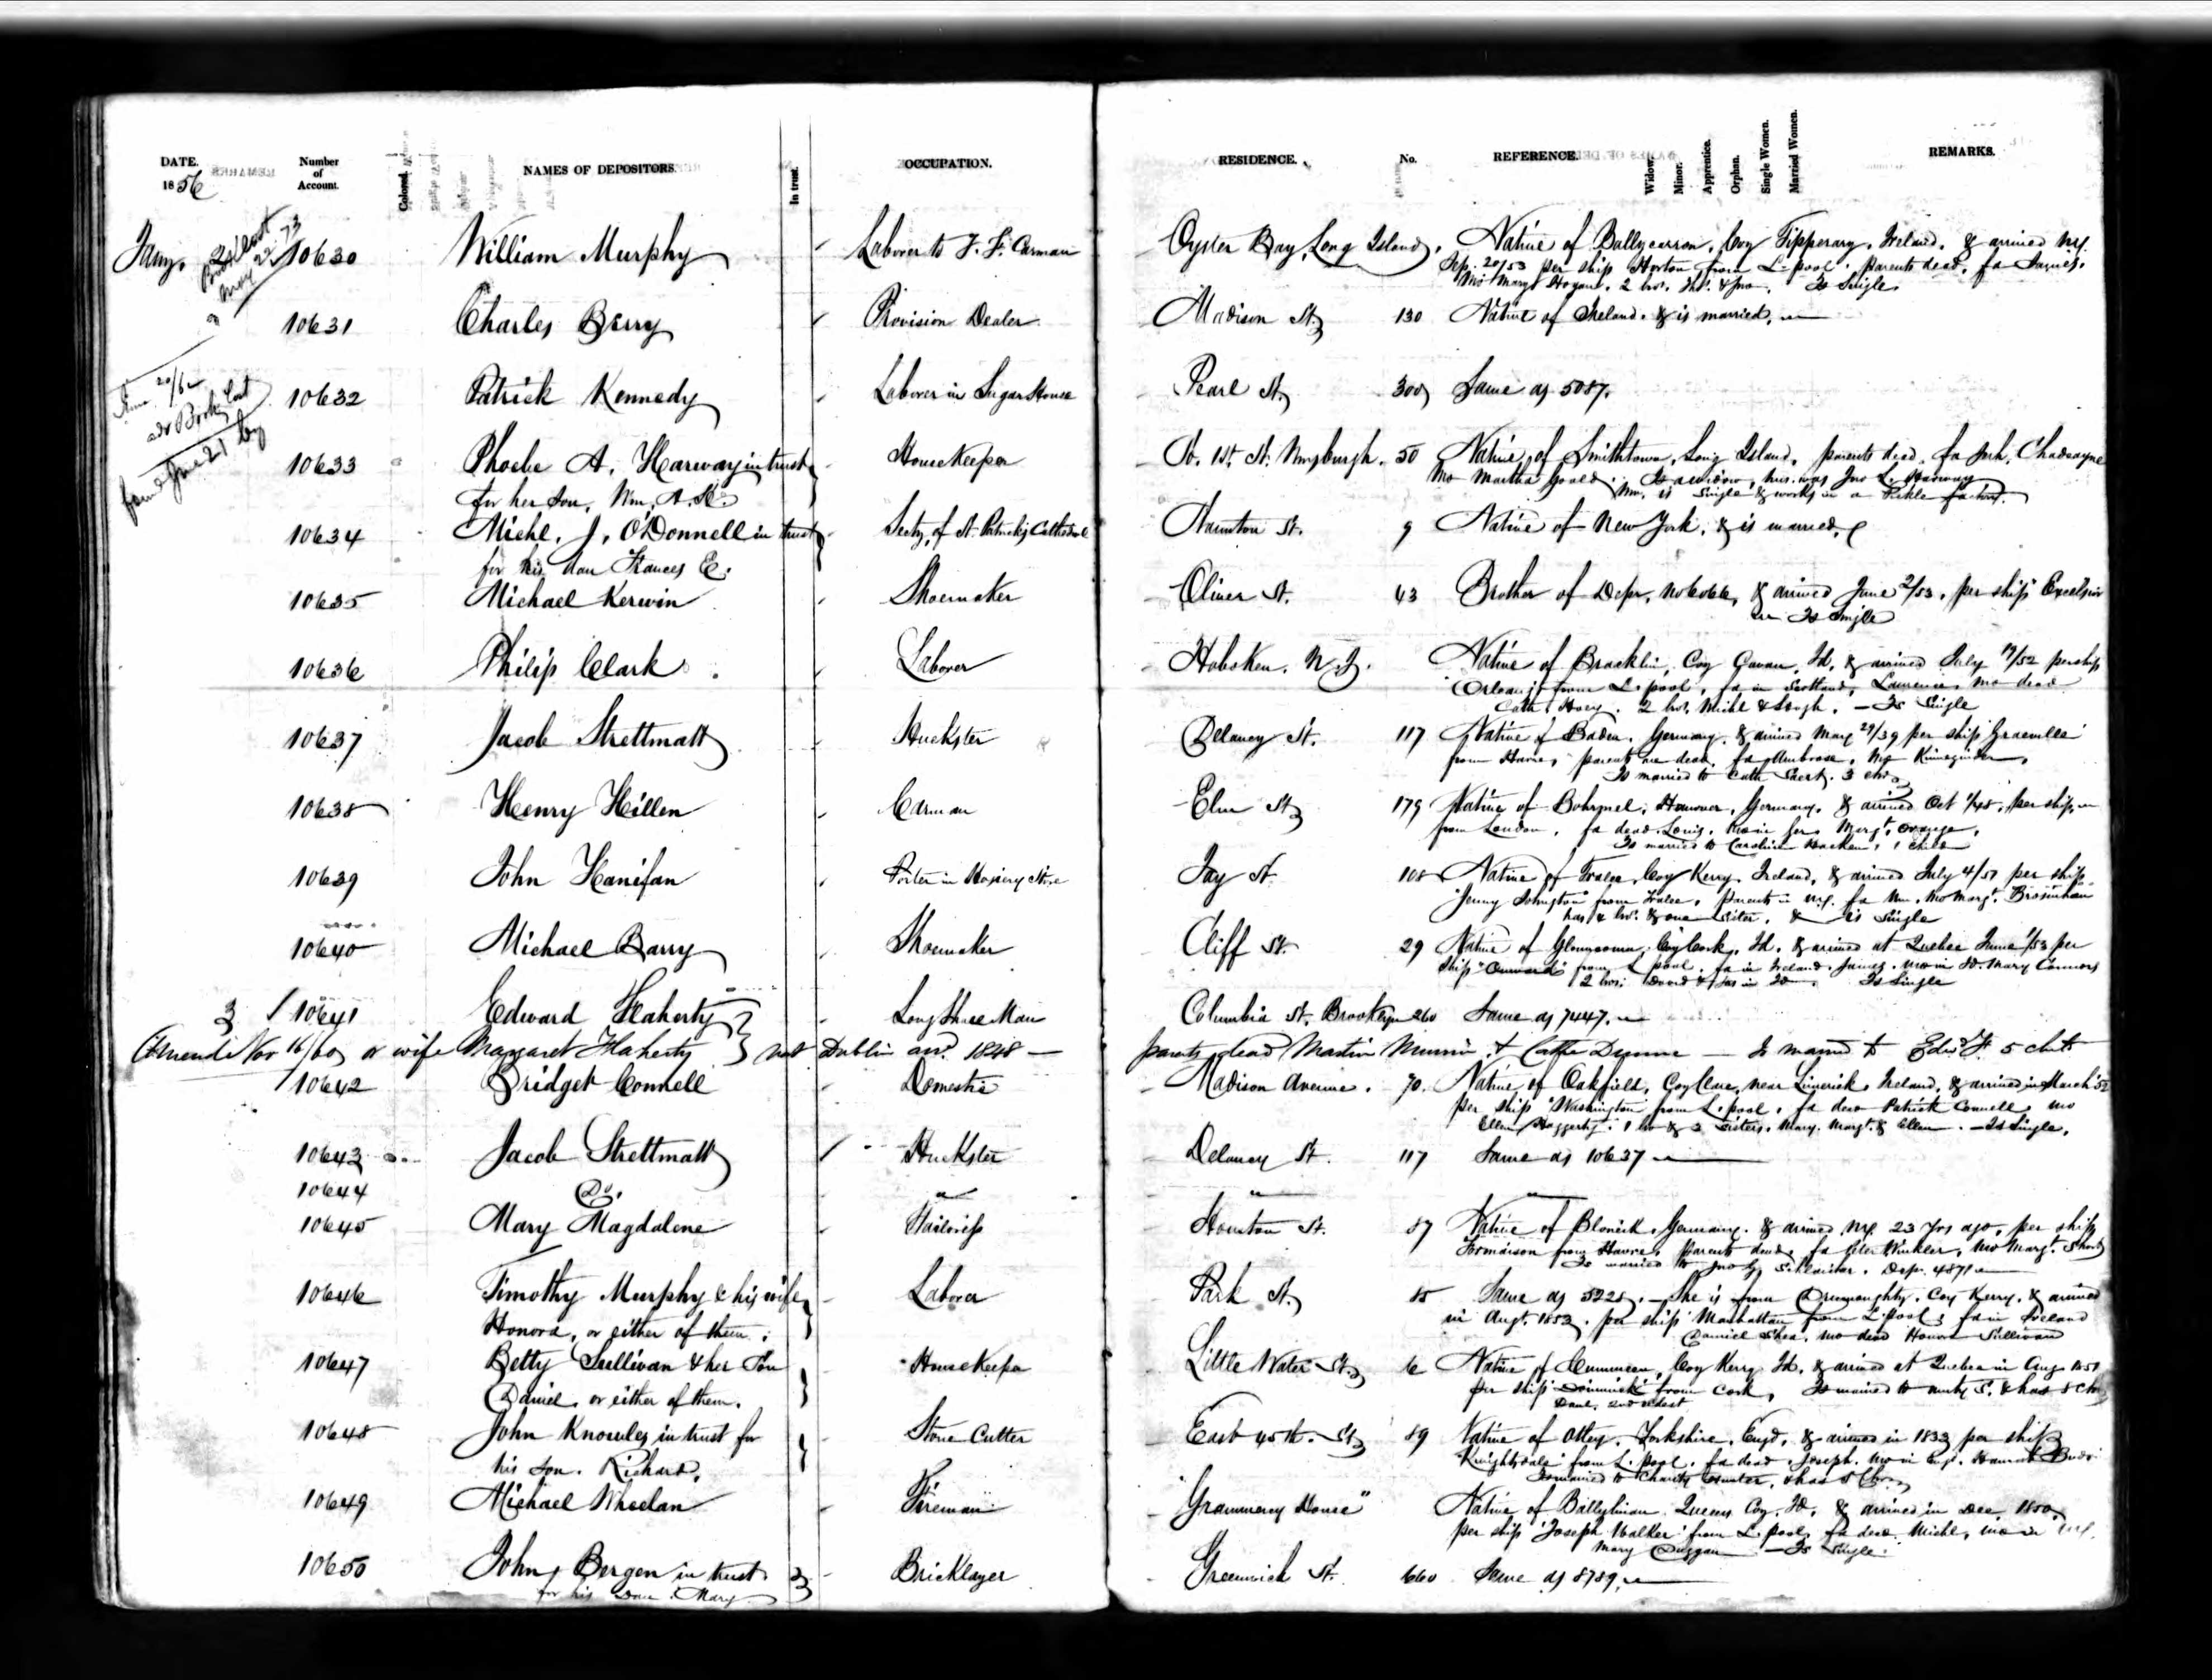 DATE. Number of Account. Colored. NAMES OF DEPOSITORS. In trust. OCCUPATION. RESIDENCE. No. REFERENCE. Widow. Minor. Apprentice. Orphan. Single Women. Married Women. REMARKS.
1856
Jany. 2 10630 William Murphy Laborer to J. F. Carman Oyster Bay, Long Island. Native of Ballycarron, Coy Tipperary, Ireland, & arrived N.Y.
Book lost May 22 73
Sep. 20/53 per ship Horton from L.pool. parents dead, fa James.
Mo Mary Hogan. 2 bro. Is Single
10631 Charles Berry Provision Dealer Madison St. 130 Native of Ireland. & is married.
10632 Patrick Kennedy Laborer in Sugar House Pearl St. 300 Same as 5087.
June 20/62 adv Book lost
found June 21
10633 Phoebe A. Harway in trust Housekeeper So. 1st. St. Wmsburgh. 50 Native of Smithtown, Long Island, parents dead, fa
for her Son, Wm. A. H. Mo Martha Gould. Is a widow, hus. was Jno L. Harway
Wm. is Single & works in a Pickle factory.
10634 Michl. J. O'Donnell in trust Secty. of St. Patricks Cathedral Houston St. 9 Native of New York, & is married.
for his dau Frances E.
10635 Michael Kerwin Shoemaker Oliver St. 43 Brother of Depr. No 6066, & arrived June 2/53, per ship Excelsior
Is Single
10636 Philip Clark Laborer Hoboken. N.J. Native of Bracklin, Coy Cavan, Id. & arrived July 19/52 per ship
Orleans from L.pool, fa in Scotland, Lawrence, mo dead
Cath. Hoey. 2 bro. Michl & Hugh. — Is Single
10637 Jacob Strettmatt Huckster Delancy St. 117 Native of Baden. Germany. & arrived May 29/39 per ship
from Havre, parents are dead, fa Ambrose, Mo
Is married to Cath 3 chn
10638 Henry Hillen Carman Elm St. 179 Native of Hanover, Germany. & arrived Oct 1/48, per ship
from London. fa dead Louis. mo in Ger. Margt.
Is married to Caroline 1 child
10639 John Hanifan Porter in Hosiery Store Jay St. 108 Native of Tralee, Coy Kerry, Ireland, & arrived July 4/51 per ship
Jenny Johnston from Tralee. Parents in N.Y. fa Wm. Mo Margt. Brosnihan
has 2 bro. & one sister. & is Single
10640 Michael Barry Shoemaker Cliff St. 29 Native of Coy Cork, Id. & arrived at Quebec June 1/53 per
ship "Onward" from L.pool. fa in Ireland. James. mo in Id. Mary Connors
2 bro. David & Jas in Id Is Single
3 10641 Edward Flaherty Long Shore Man Columbia St. Brooklyn 260 Same as 7447.
Amend. Nov 16/60 or wife Margaret Flaherty nat Dublin arr. 1848 — parents dead Martin & Cathe — Is married to Edwd F 5 chn
10642 Bridget Connell Domestic Madison Avenue. 70. Native of Oakfield, Coy Clare, near Limerick, Ireland, & arrived in March 52
per ship "Washington" from L.pool, fa dead Patrick Connell, mo
Ellen Haggerty. 1 bro & 3 sisters. Mary. Margt. & Ellen. — Is Single.
10643 Jacob Strettmatt Huckster Delancy St. 117 Same as 10637
10644 Do. " " "
10645 Mary Magdalene Tailoress Houston St. 87 Native of Germany. & arrived N.Y. 23 yrs ago, per ship
from Havre, parents dead, fa Peter Winkler, Mo Margt.
Is married to Jno G. Depr. 4871
10646 Timothy Murphy & his wife Laborer Park St. 85 Same as 5228. — She is from Coy Kerry, & arrived
Honora, or either of them. in Augt. 1853. per ship Manhattan from L'pool, fa in Ireland
Daniel Shea, mo dead Honora Sullivan
10647 Betty Sullivan & her Son Housekeeper Little Water St. 6 Native of Coy Kerry Id. & arrived at Quebec in Aug 1851
Daniel, or either of them. per ship from Cork, Is married to & has 8 chn
Danl. 2nd eldest
10648 John Knowles in trust for Stone Cutter East 45th. St. 89 Native of Otley. Yorkshire. Engd. & arrived in 1833 per ship
his son. Richard, "Knightsdale" from L.pool. fa dead Joseph. Mo in Eng. Hannah
Is married to Charity Hunter, & has 5 chn
10649 Michael Wheelan Fireman "Grammercy House" Native of Queens Coy. Id. & arrived in Dec. 1850,
per ship 'Joseph Walker' from L.pool, fa dead. Michl, mo in N.Y.
Mary Duggan — Is Single.
10650 John Bergen in trust Bricklayer Greenwich St. 660 Same as 8789.
for his Dau. Mary